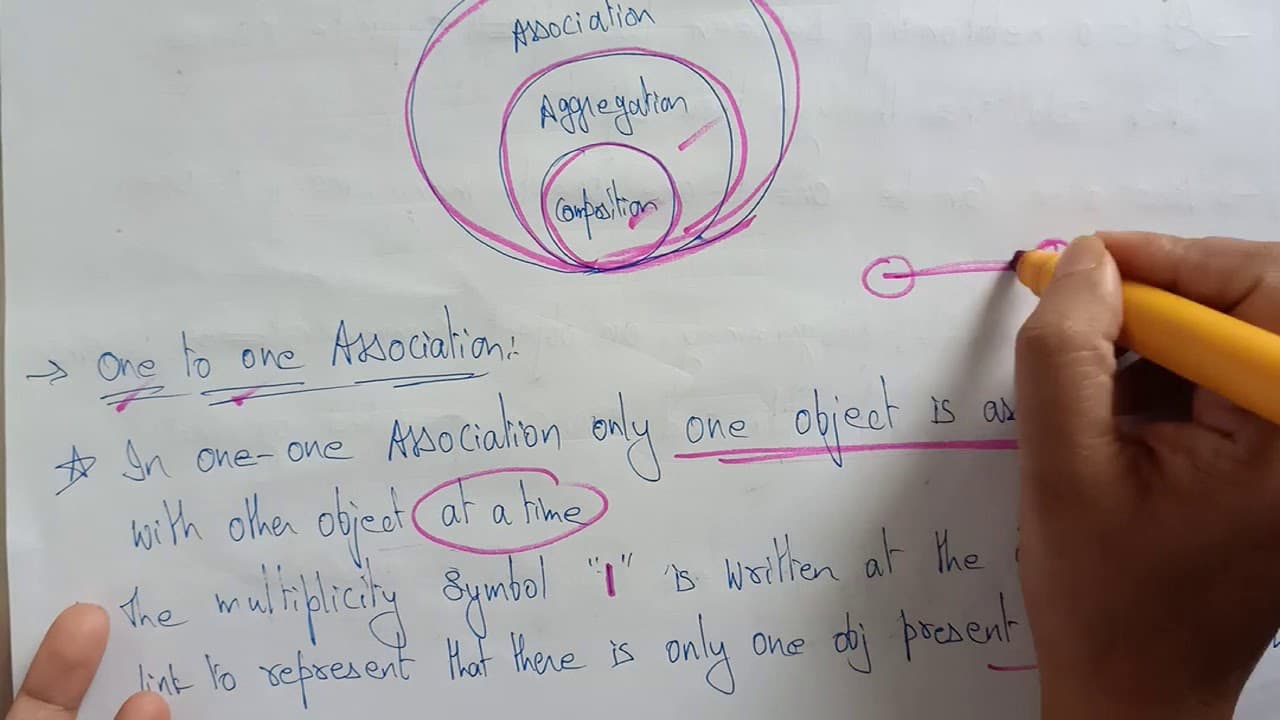 Association
Aggregation
Composition
→ One to one Association:
☆ In one-one Association only one object is as
with other object at a time
The multiplicity symbol "1" is written at the
link to represent that there is only one obj present